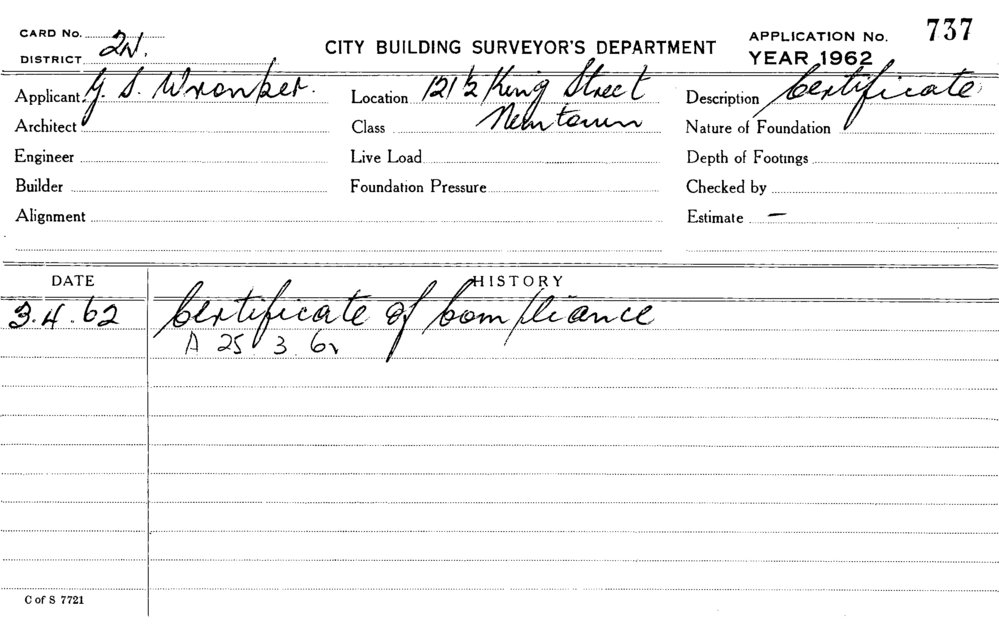 CARD No.
DISTRICT 2N.
CITY BUILDING SURVEYOR'S DEPARTMENT
APPLICATION No. 737
YEAR 1962
Applicant G. S. Wronker. Location 121½ King Street Description Certificate
Architect Class Newtown Nature of Foundation
Engineer Live Load Depth of Footings
Builder Foundation Pressure Checked by
Alignment Estimate —
DATE HISTORY
3.4.62 Certificate of Compliance
A 25 3 62
C of S 7721